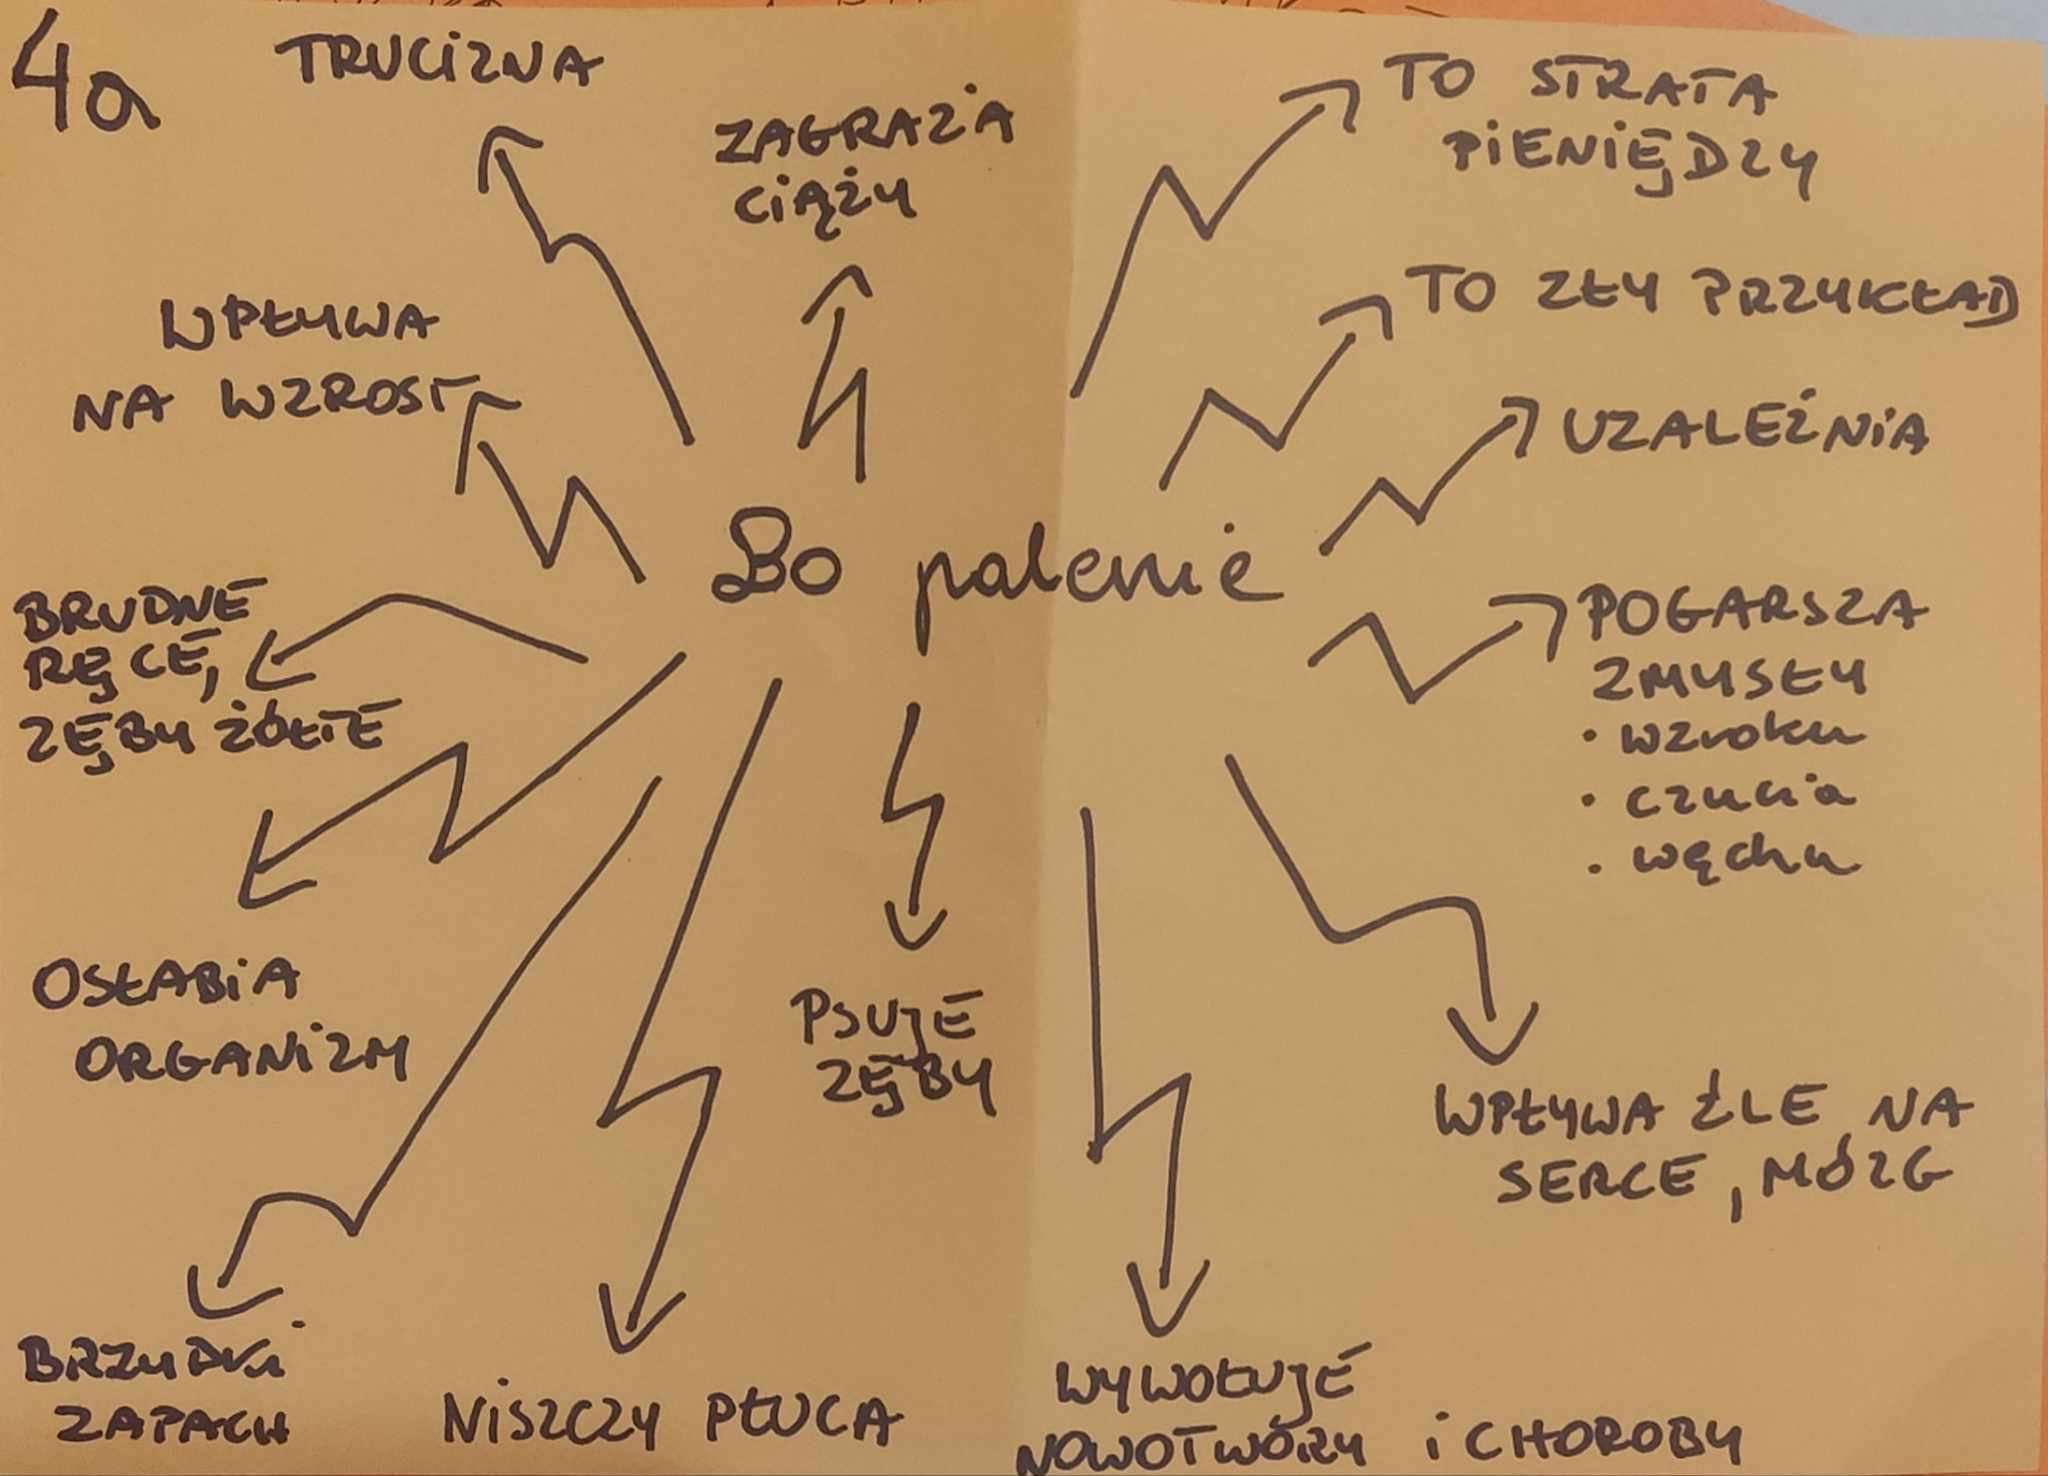 4a
TRUCIZNA
ZAGRAŻA
CIĄŻY
TO STRATA
PIENIĘDZY
WPŁYWA
NA WZROST
TO ZŁY PRZYKŁAD
UZALEŻNIA
Bo palenie
BRUDNE
RĘCE,
ZĘBY ŻÓŁTE
POGARSZA
ZMYSŁY
• wzroku
• czucia
• węchu
OSŁABIA
ORGANIZM
PSUJE
ZĘBY
WPŁYWA ŹLE NA
SERCE, MÓZG
BRZYDKI
ZAPACH
NISZCZY PŁUCA
WYWOŁUJE
NOWOTWORY i CHOROBY